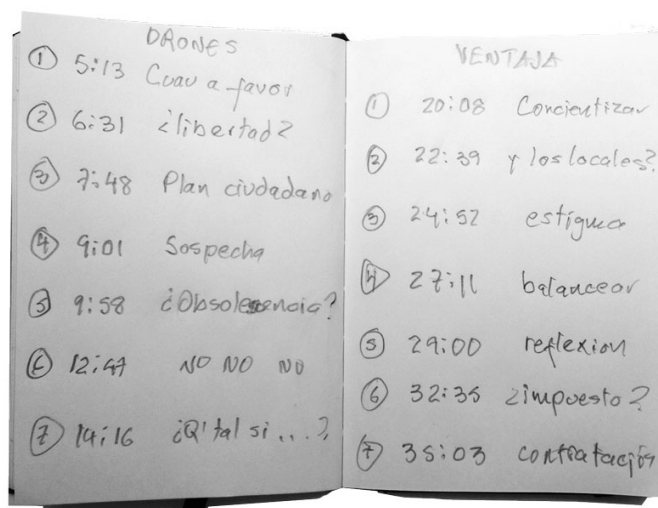 DRONES
① 5:13 Cuau a favor
② 6:31 ¿libertad?
③ 7:48 Plan ciudadano
④ 9:01 Sospecha
⑤ 9:58 ¿Obsolescencia?
⑥ 12:47 NO NO NO
⑦ 14:16 ¿Q' tal si...?
VENTAJA
① 20:08 Concientizar
② 22:39 y los locales?
③ 24:52 estigma
④ 27:11 balancear
⑤ 29:00 reflexion
⑥ 32:35 ¿impuesto?
⑦ 35:03 contratación